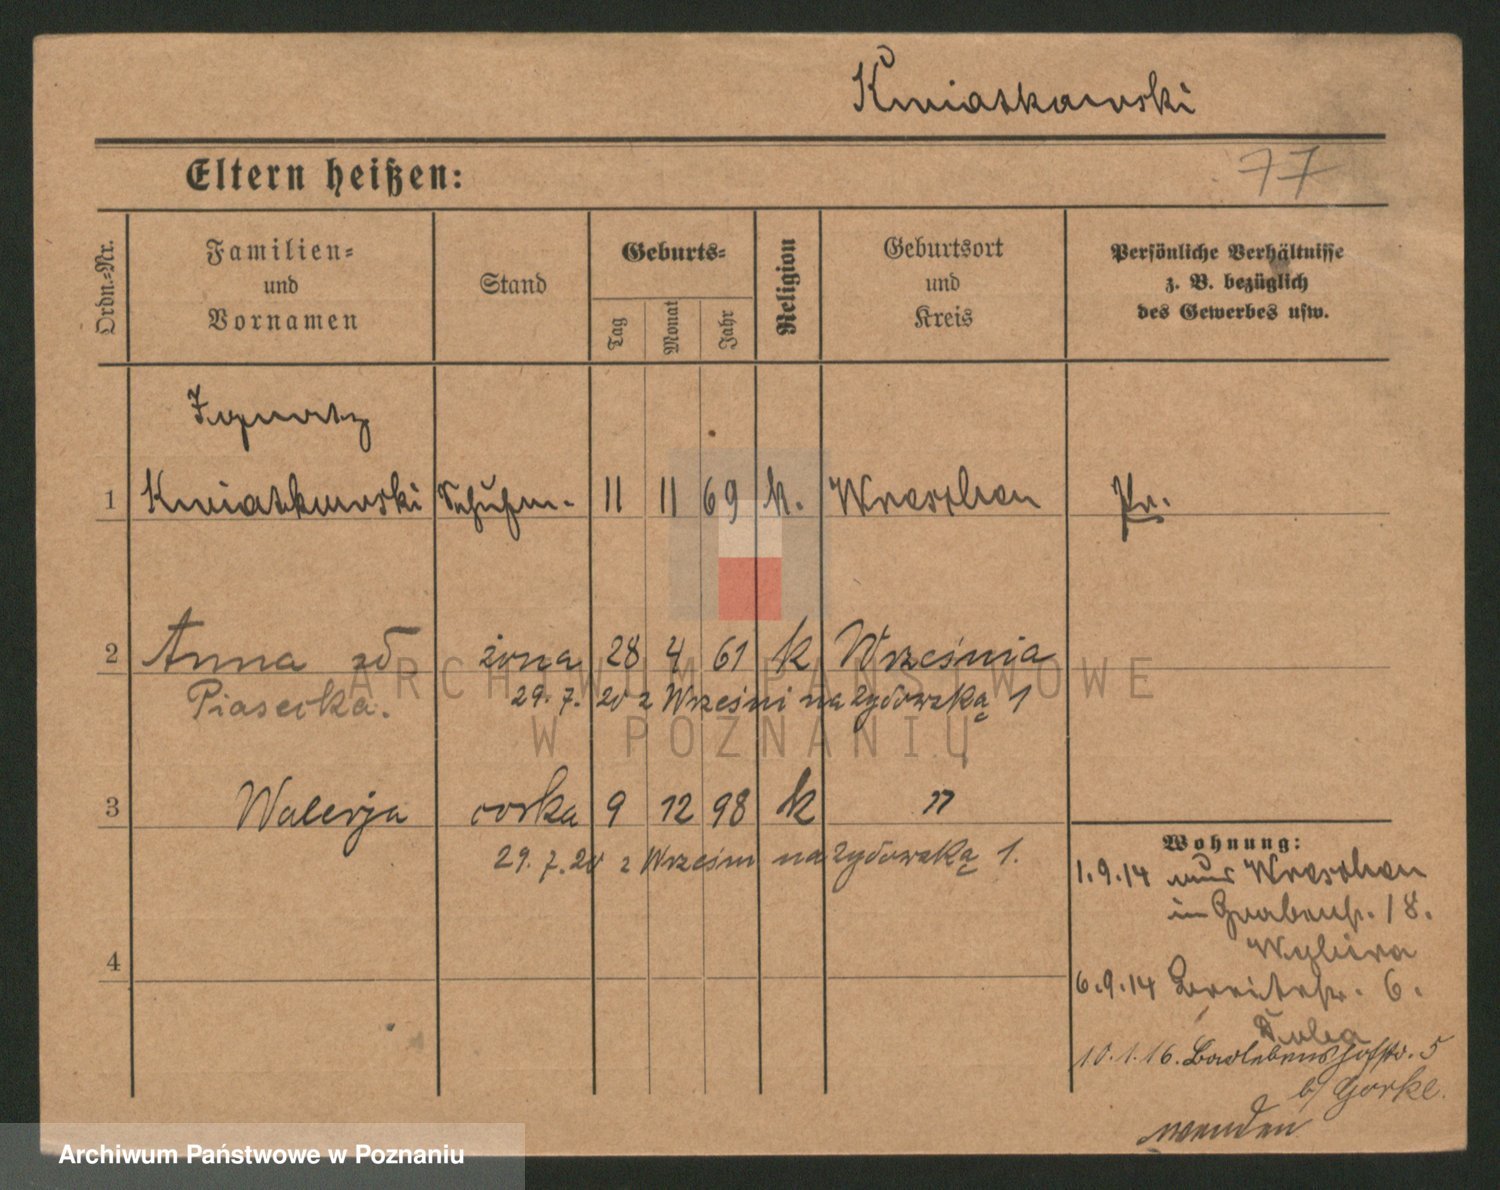 Kwiatkowski
Eltern heißen:
77
Ordn.-Nr.
Familien-
und
Vornamen
Stand
Geburts-
Tag
Monat
Jahr
Religion
Geburtsort
und
Kreis
Persönliche Verhältnisse
z. B. bezüglich
des Gewerbes usw.
Ignatz
1 Kwiatkowski Schuhm. 11 11 69 k. Wreschen Pr.
2 Anna zd żona 28 4 61 k Września
Piasecka. 29. 7. 20 z Wrześni na Żydowską 1
3 Walerja córka 9 12 98 k "
29. 7. 20 z Wrześni na Żydowską 1.
4
Wohnung:
1.9.14 aus Wreschen
in Grabenstr. 18.
6.9.14 Breitestr. 6.
10.1.16. 5
b/ Gorke.
wenden
ARCHIWUM PAŃSTWOWE
W POZNANIU
Archiwum Państwowe w Poznaniu